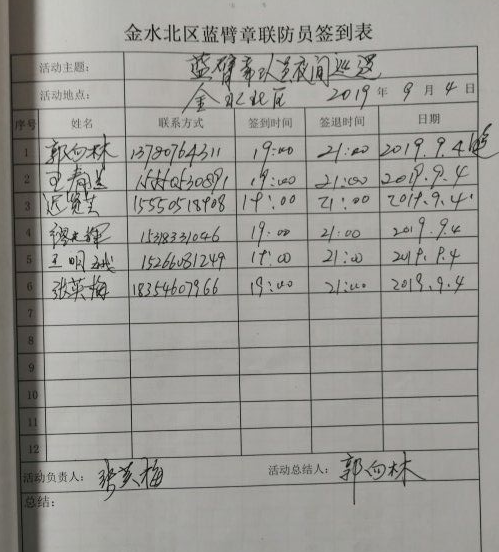 金水北区蓝臂章联防员签到表
活动主题： 蓝臂章队员夜间巡逻
活动地点： 金水北区 2019 年 9 月 4 日
序号 姓名 联系方式 签到时间 签退时间 日期
1 郭向林 13780764311 19:00 21:00 2019.9.4
2 15550530891 19:00 21:00 2019.9.4
3 15550518908 19:00 21:00 2019.9.4
4 15318331046 19:00 21:00 2019.9.4
5 王明 15266081249 19:00 21:00 2019.9.4
6 张英梅 18354607966 19:00 21:00 2019.9.4
7
8
9
10
11
12
活动负责人： 张英梅 活动总结人： 郭向林
总结：